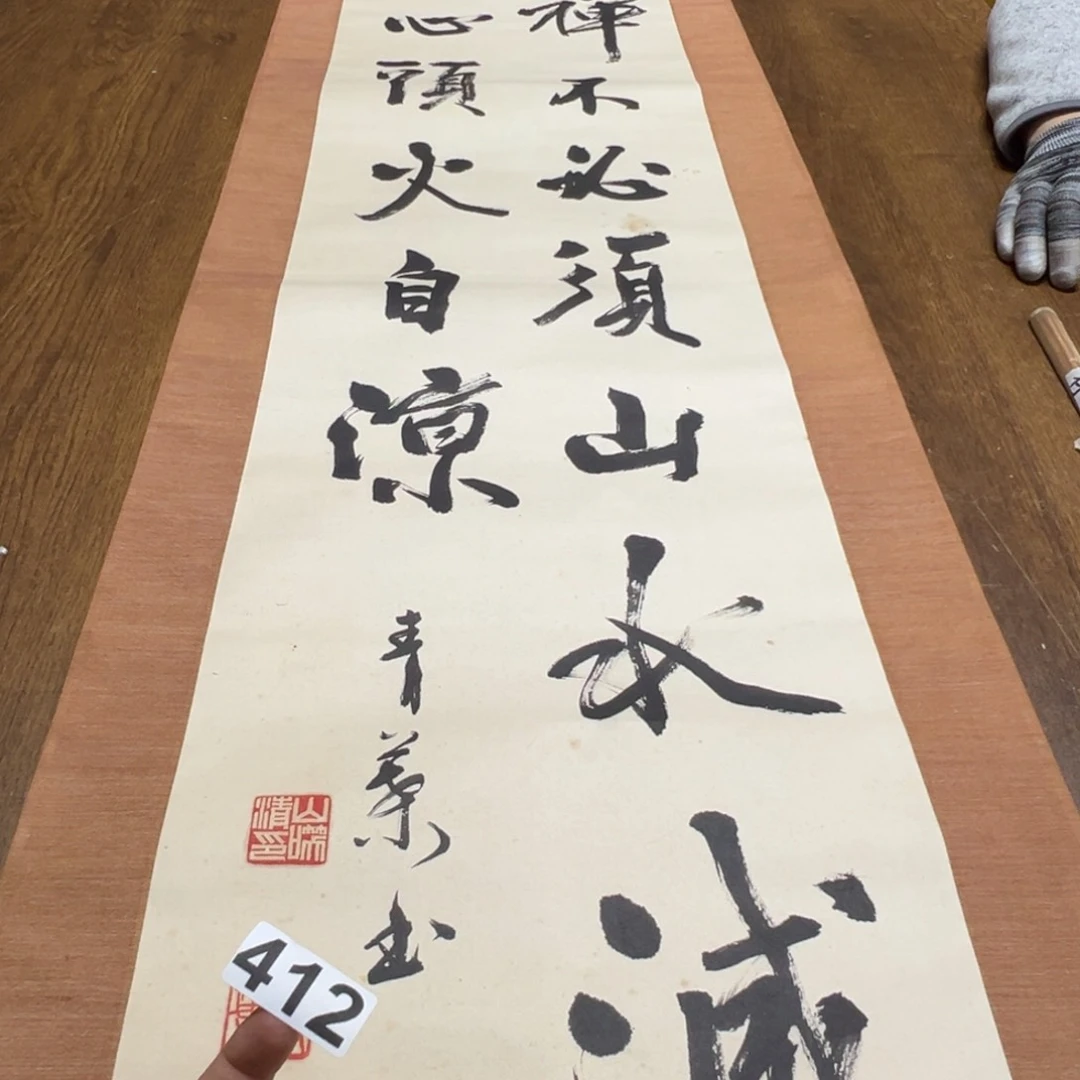 禅不必須山水滅
心頭火自涼
青葉書
清印
412